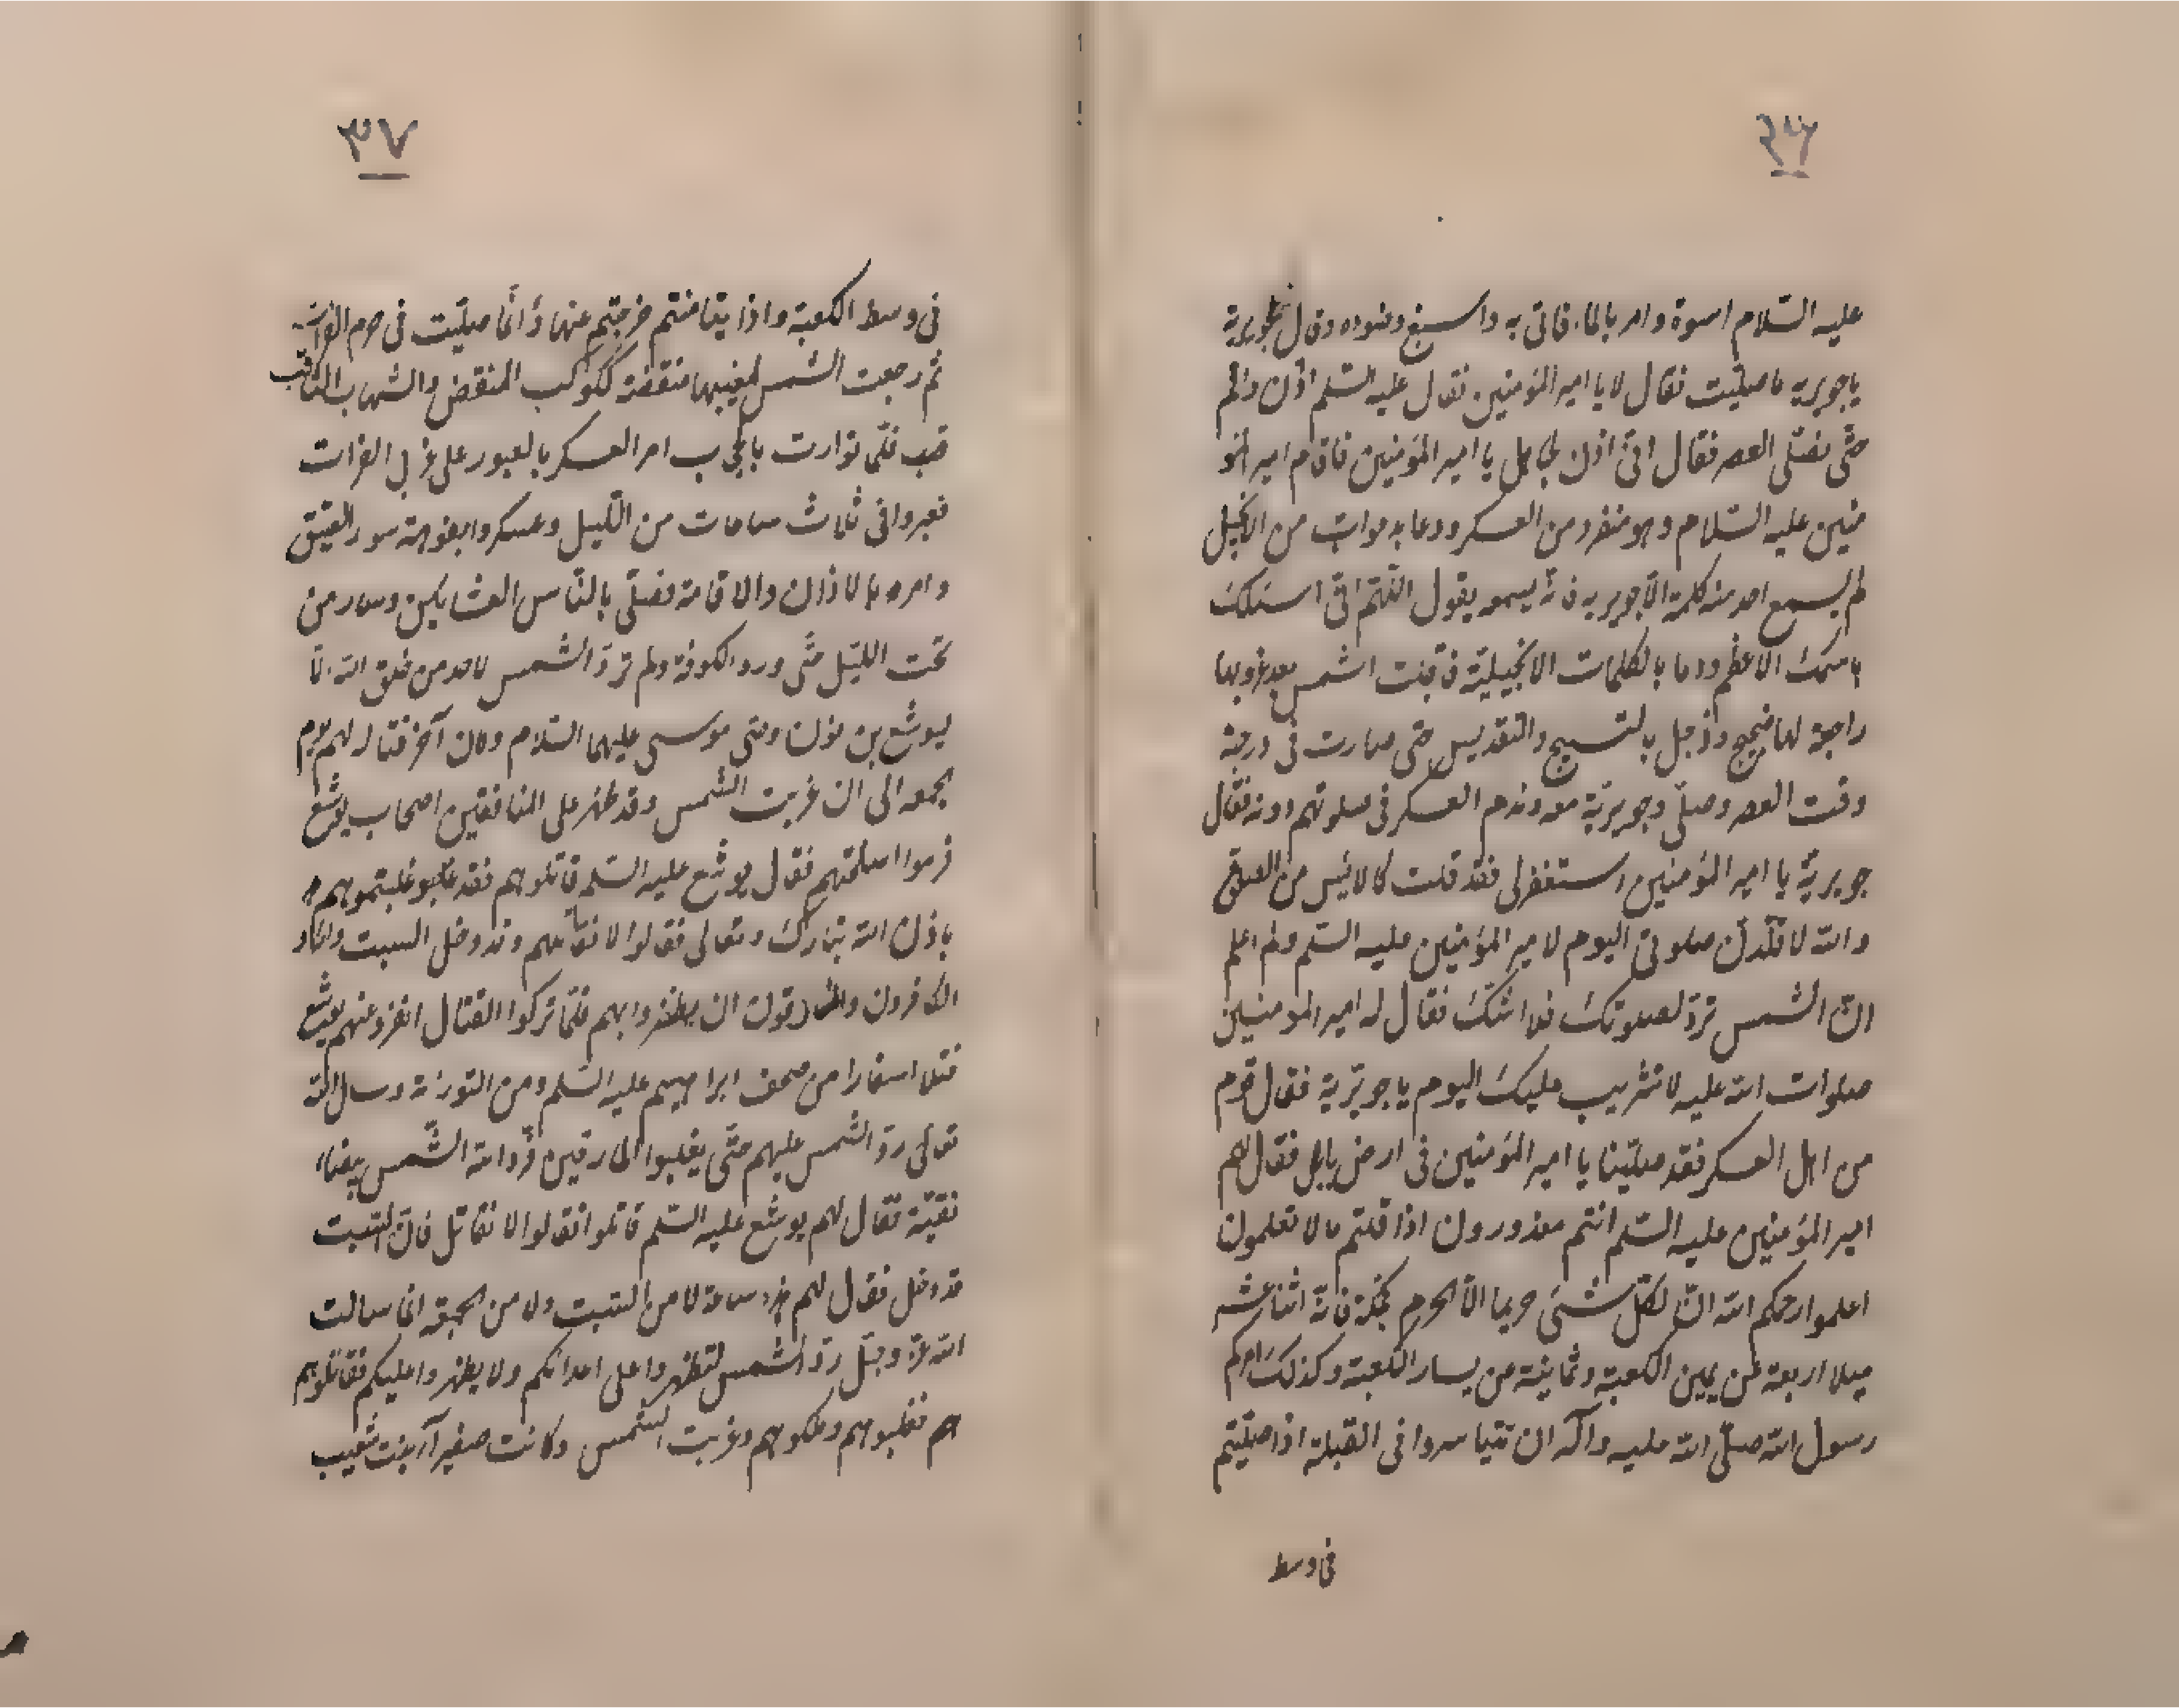 ٣٦
عليه السّلام اسوة وامر بالماء فاتى به واسبغ وضوءه وقال لجويرية
يا جويريه ما صلّيت فقال لا يا امير المؤمنين فقال عليه السّلم اذّن واقم
حتّى نصلّى العصر فقال انّى اذن يا امير المؤمنين فاقام امير المؤ
منين عليه السّلام وهو منفرد من العسكر ودعا بدعوات من الانجيل
لم يسمع احد منه كلمة الّا جويريه فانّه يسمعه يقول اللّهمّ انّى اسئلك
باسمك الاعظم ودعا بالكلمات الانجيليّة فاقبلت الشمس بعد غروبها
راجعة لها ضجيج وزجل بالتسبيح والتقديس حتى صارت فى درجة
وقت العصر وصلّى وجويريّة معه وندم العسكر فى صلوتهم دونه فقال
جويريّة يا امير المؤمنين استغفر لى فقد قلت كالائيس من الصلوة
والله لا قلّدنّ صلوتى اليوم لامير المؤمنين عليه السّلم ولم اعلم
انّ الشمس تردّ لصلوتك فلا اشكّ فقال له امير المومنين
صلوات الله عليه لا تثريب عليك اليوم يا جويريّة فقال قوم
من اهل العسكر فقد صلّينا يا امير المؤمنين فى ارض بابل فقال لهم
امير المؤمنين عليه السّلم انتم معذورون اذا قلتم ما لا تعلمون
اعلموا رحمكم الله انّ لكلّ شئ حريما الّا الحرم بمكّة فانّه اثنا عشر
ميلا اربعة عن يمين الكعبة وثمانية من يسار الكعبة وكذلك امركم
رسول الله صلّى الله عليه وآله ان تتياسروا فى القبلة اذا صلّيتم
فى وسط
٣٧
فى وسط الكعبة واذا تيامنتم خرجتم عنها وانّما صلّيت فى حرم الفرات
ثم رجعت الشمس لمغيبها منقضة ككوكب المنقض والشهاب الثاقب
فلمّا توارت بالحجاب امر العسكر بالعبور على الفرات
فعبروا فى ثلاث ساعات من اللّيل وعسكروا بفوهة سور العتيق
وامره بالاذان والاقامة فصلّى بالنّاس العشائين وسار من
تحت الليل حتّى ورد الكوفة ولم تردّ الشمس لاحد من خلق الله الّا
ليوشع بن نون وصى موسى عليهما السّلام وكان آخر قتاله لهم يوم
الجمعه الى ان غربت الشمس وقد ظهر على المنافقين اصحاب يوشع
فرموا اسلحتهم فقال يوشع عليه السّلم قاتلوهم فقد غلبتموهم
باذن الله تبارك وتعالى فقالوا لا نقاتلهم وقد دخل السبت وكاد
الكافرون والمارقون ان يظفروا بهم فلمّا تركوا القتال انفرد عنهم يوشع
فتلا اسفارا من صحف ابراهيم عليه السّلم ومن التورٰية وسال الله
تعالى ردّ الشمس عليهم حتّى يغلبوا المارقين فردّ الله الشّمس بيضاء
نقيّة فقال لهم يوشع عليه السّلم قاتلوا فقالوا لا نقاتل فانّ السّبت
قد دخل فقال لهم هذه ساعة لا من السّبت ولا من الجمعة انّما سالت
الله عزّ وجلّ ردّ الشمس لتظهروا على اعدائكم ولا يظهروا عليكم فقاتلوهم
هم فغلبوهم وملكوهم وغربت الشمس وكانت صفيرآء بنت شعيب